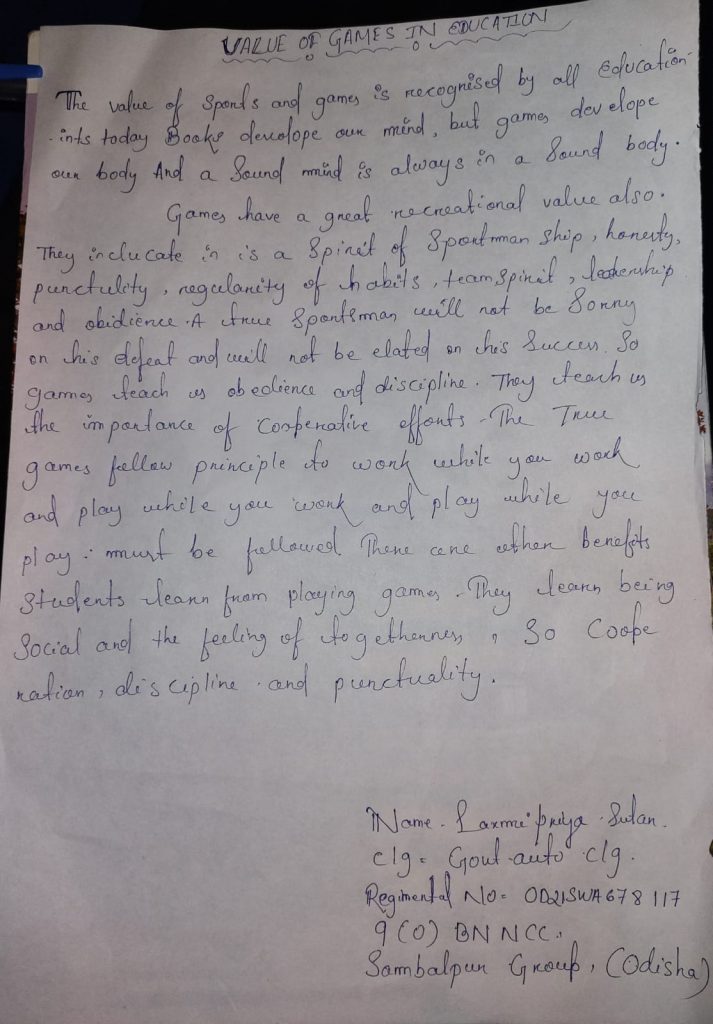 VALUE OF GAMES IN EDUCATION
The value of sports and games is recognised by all Education
-ints today Books develope our mind, but games develope
our body And a Sound mind is always in a Sound body.
Games have a great recreational value also.
They inclucate in is a Spirit of Sportman ship, honesty,
punctulity, regularity of habits, team spirit, leadership
and obidience. A true Sportsman will not be Sorry
on his defeat and will not be elated on his Success. So
games teach us obedience and discipline. They teach us
the importance of Cooperative efforts - The True
games fellow principle to work while you work
and play while you work and play while you
play. must be followed There are other benefits
students learn from playing games. They learn being
Social and the feeling of togetherness, So Coope
ration, discipline and punctuality.
Name - Laxmi priya Sutar.
Clg - Govt auto clg.
Regimental No- OD21SWA678117
9 (O) BN NCC.
Sambalpur Group, (Odisha)